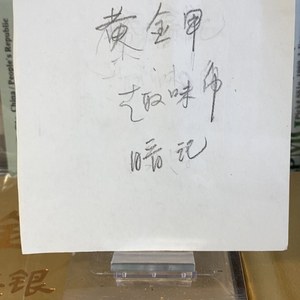 黄金甲
趣味币
暗记
China / People's Republic
银